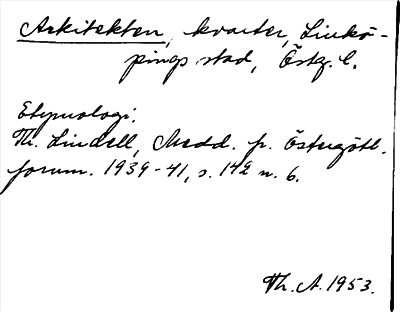 Arkitekten, kvarter, Linkö-
pings stad, Östg. l.
Etymologi.
Th. Lindell, Medd. fr. Östergötl.
forum. 1939-41, s. 142 n. 6.
Th. A. 1953.